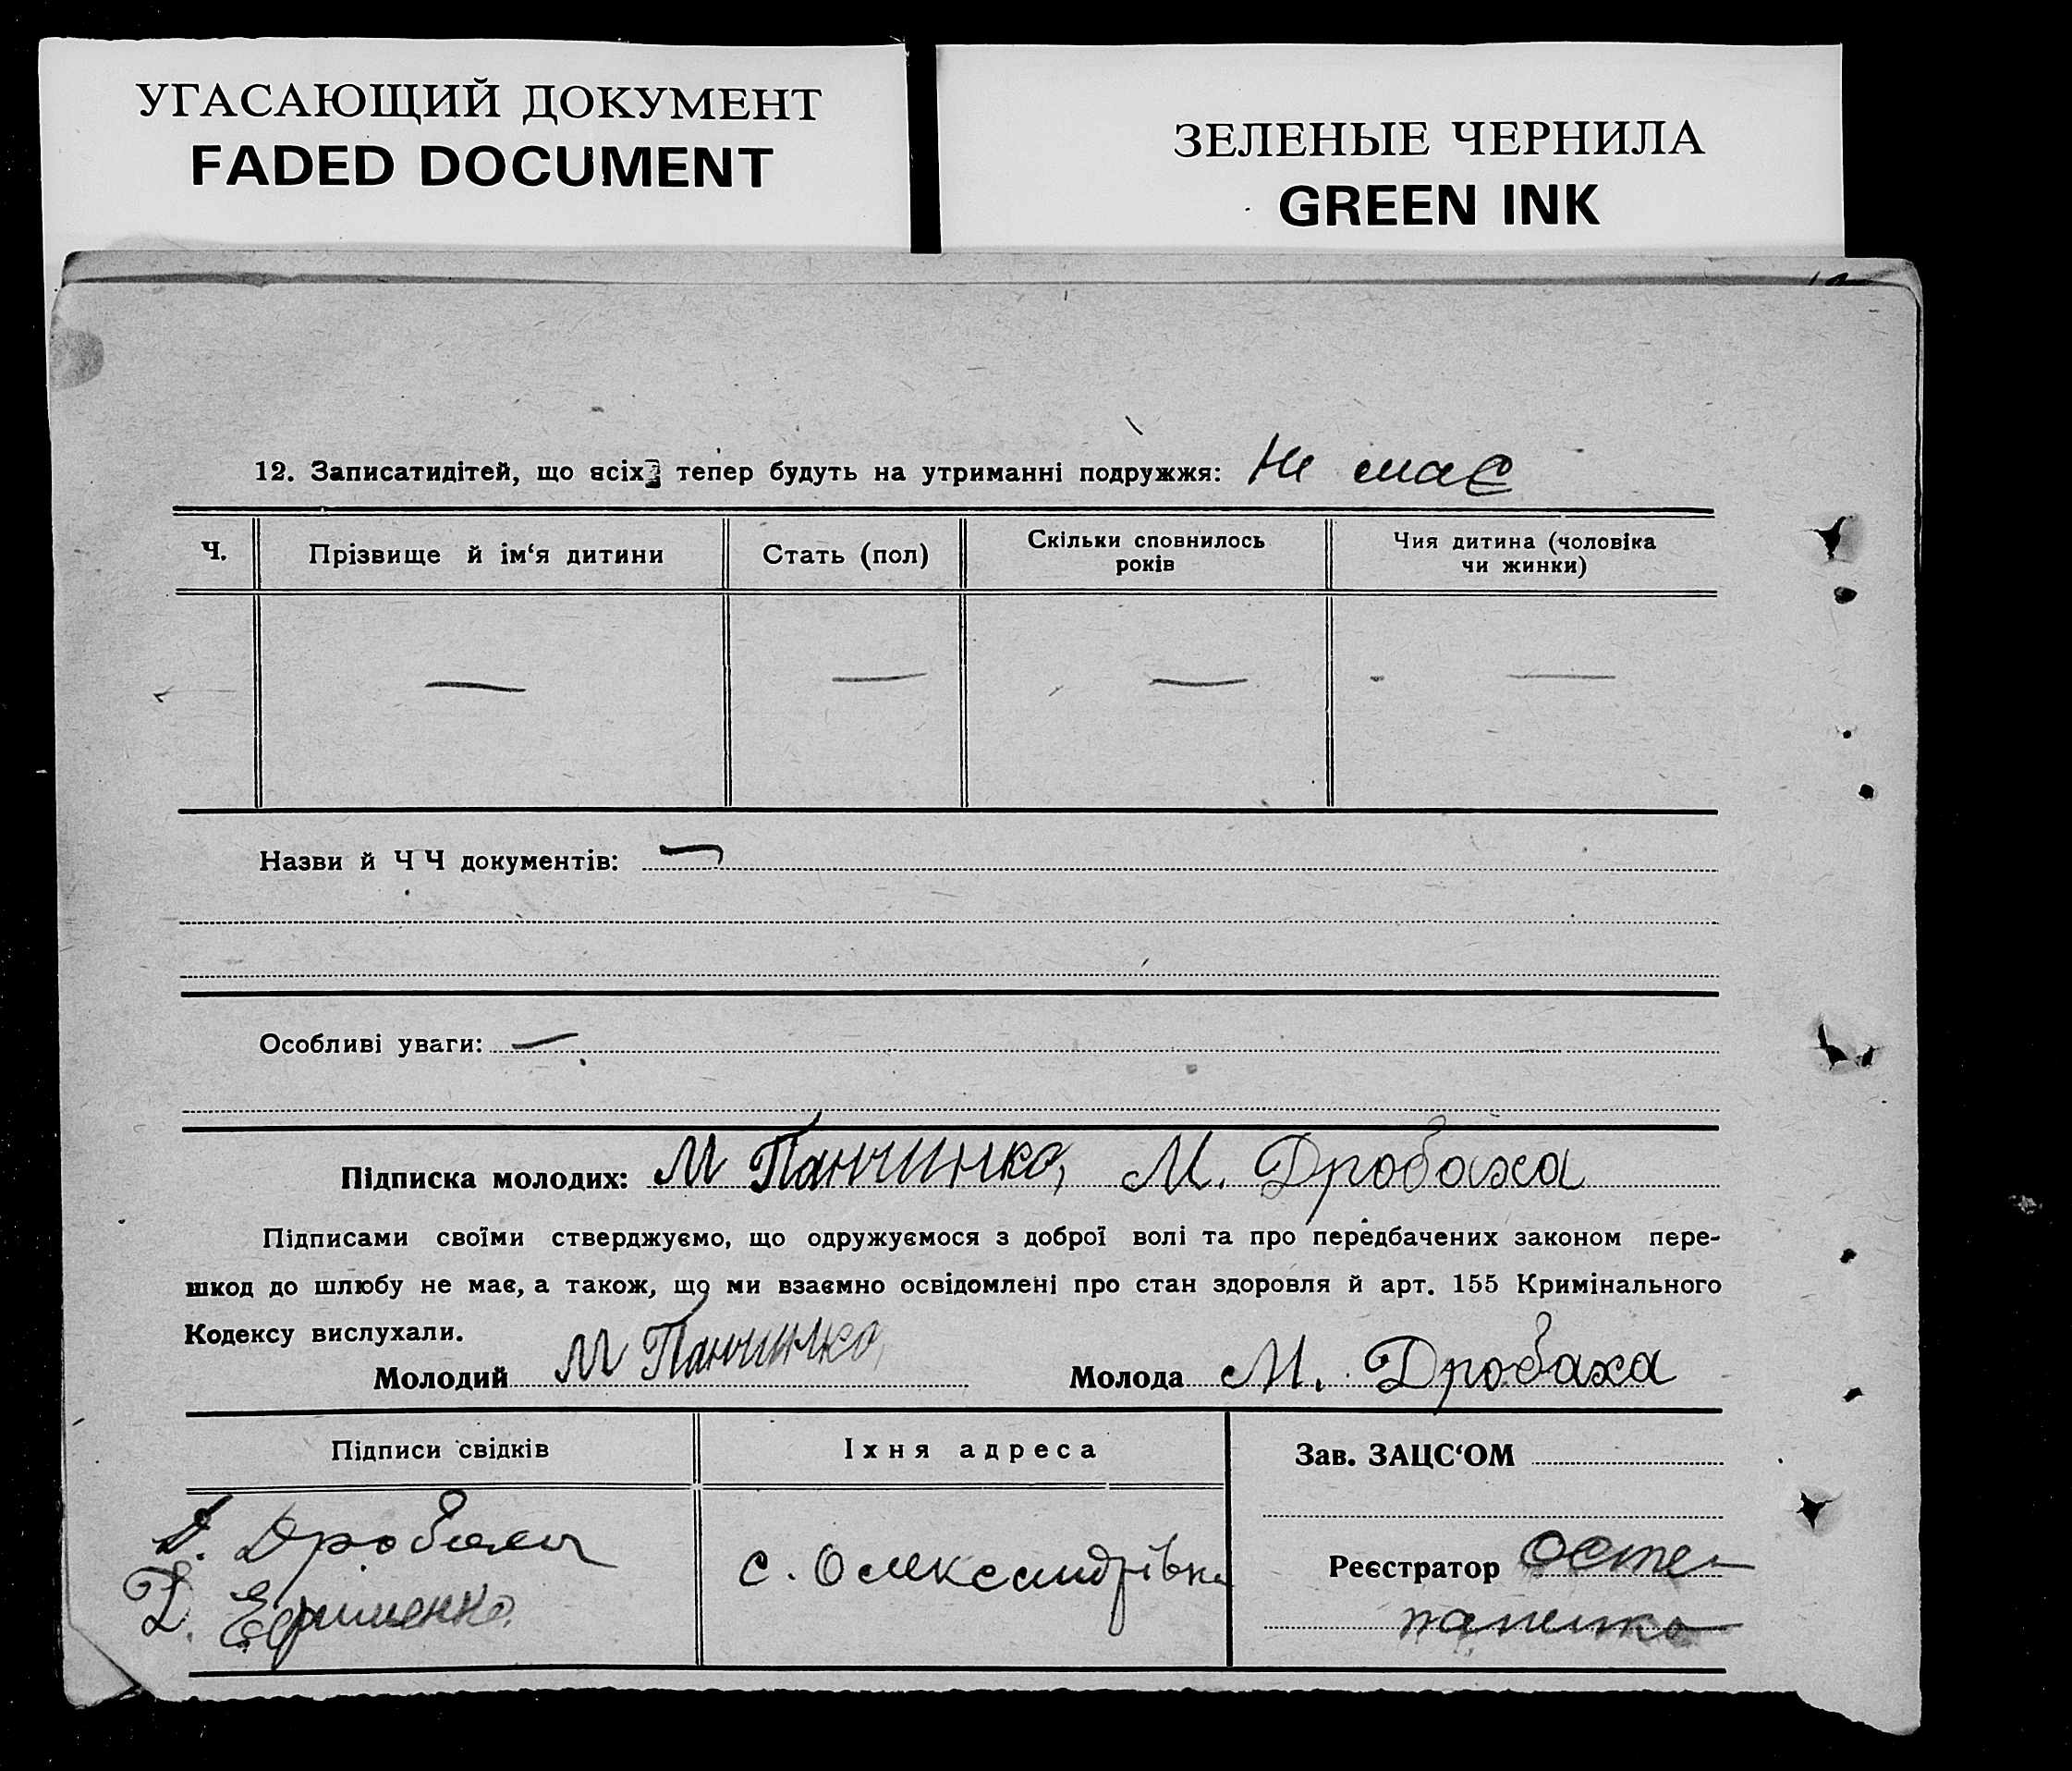 УГАСАЮЩИЙ ДОКУМЕНТ
FADED DOCUMENT
ЗЕЛЕНЫЕ ЧЕРНИЛА
GREEN INK
12. Записатидітей, що всіх тепер будуть на утриманні подружжя: Не має
Ч. Прізвище й ім‘я дитини Стать (пол) Скільки сповнилось років Чия дитина (чоловіка чи жинки)
— — — —
Назви й ЧЧ документів: —
Особливі уваги: —
Підписка молодих: М Панчинко, М. Дробаха
Підписами своїми стверджуємо, що одружуємося з доброї волі та про передбачених законом пере-
шкод до шлюбу не має, а також, що ми взаємно освідомлені про стан здоровля й арт. 155 Кримінального
Кодексу вислухали.
Молодий М Панчинко, Молода М. Дробаха
Підписи свідків Їхня адреса Зав. ЗАЦС‘ОМ
Д. Дробаха
Д. Ефименко
с. Олександрівка
Реєстратор Осте-
паненко